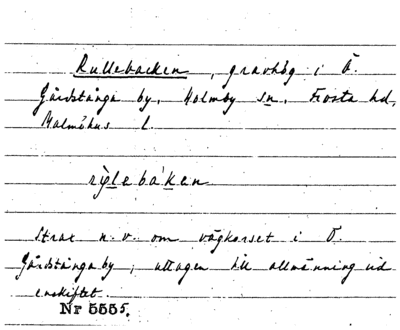 Rullebacken, gravhög i Ö.
Gårdstånga by, Holmby sn, Frosta hd,
Malmöhus l.
rỳlebáken
Strax n.v. om vägkorset i Ö.
Gårdstånga by; uttagen till allmänning vid
enskiftet.
Nr 5555.